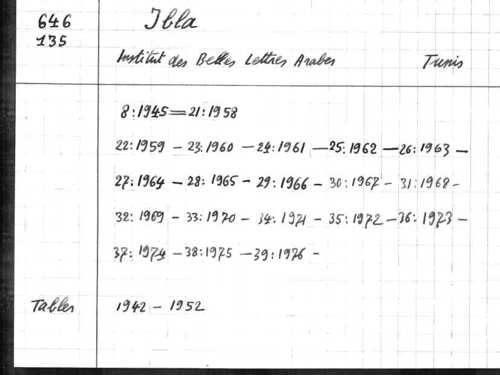 646 Ibla
135
Institut des Belles Lettres Arabes Tunis
8:1945=21:1958
22:1959 - 23:1960 - 24:1961 - 25:1962 - 26:1963 -
27:1964 - 28:1965 - 29:1966 - 30:1967 - 31:1968 -
32:1969 - 33:1970 - 34:1971 - 35:1972 - 36:1973 -
37:1974 - 38:1975 - 39:1976 -
Tables 1942 - 1952